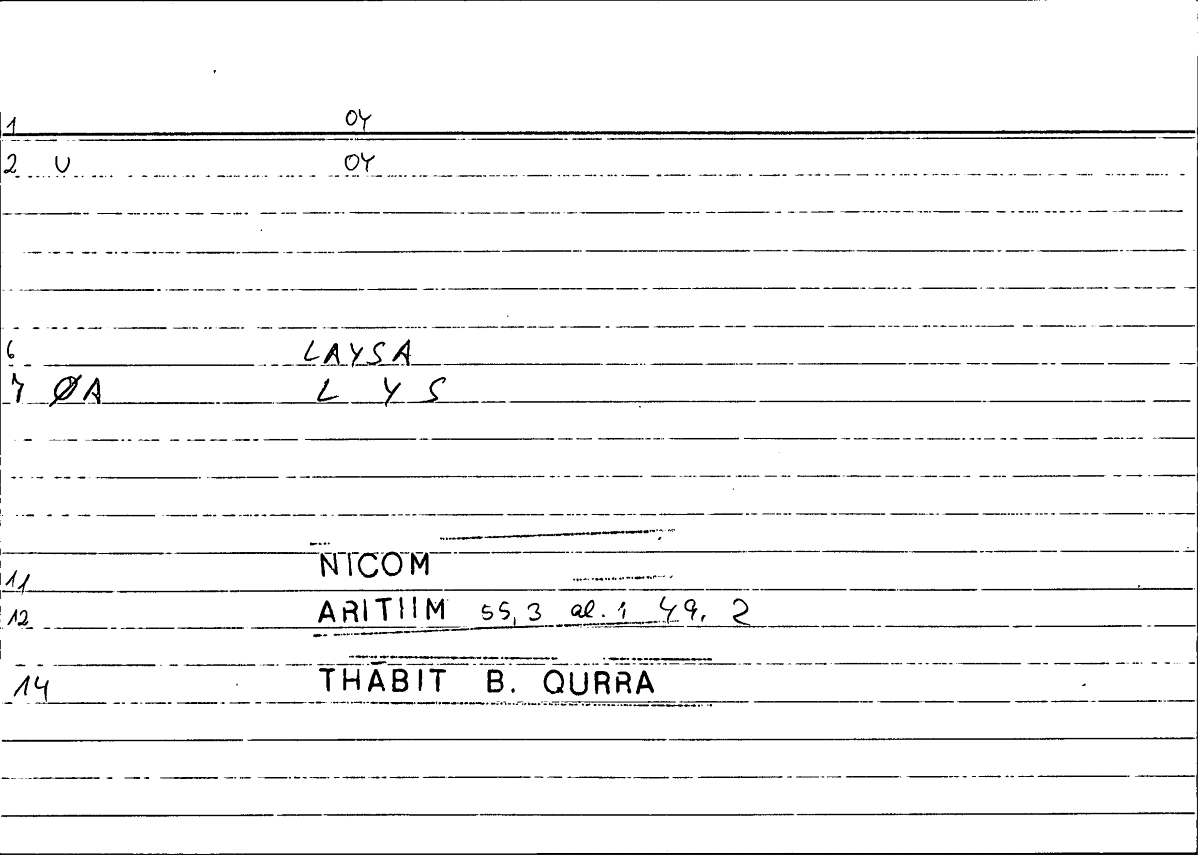 1 OY
2 U OY
6 LAYSA
7 ØA L Y S
11 NICOM
12 ARITIIM 55,3 al. 1 49, 2
14 THĀBIT B. QURRA